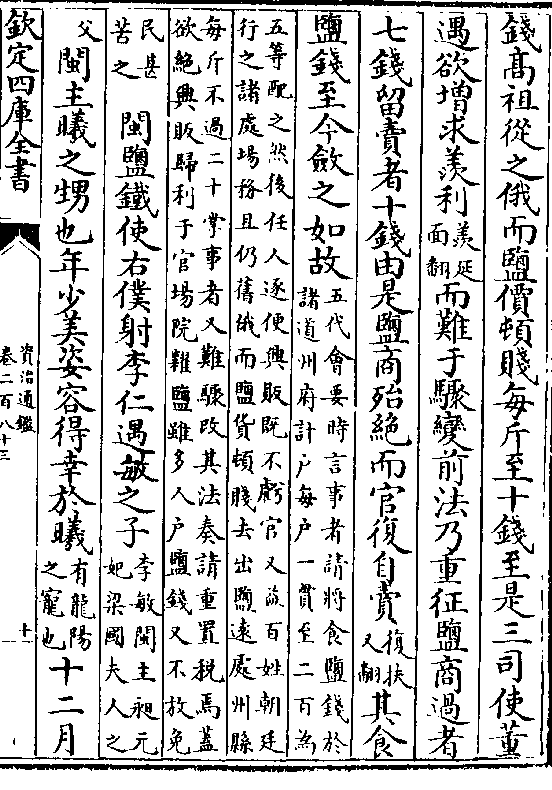 錢髙祖從之俄而鹽價頓賤每斤至十錢至是三司使董
遇欲增求羨利羨延面翻而難于驟變前法乃重征鹽商過者
七錢留賣者十錢由是鹽商殆絶而官復自賣復扶又翻其食
鹽錢至今斂之如故五代會要時言事者請將食鹽錢於
諸道州府計户每户一貫至二百為
五等配之然後任人逐便興販既不虧官又益百姓朝廷
行之諸處場務且仍舊俄而鹽貨頓賤去出鹽遠處州縣
每斤不過二十掌事者又難驟改其法奏請重置稅焉蓋
欲絶興販歸利于官場院糶鹽雖多人户鹽錢又不放免
民甚苦之 閩鹽鐵使右僕射李仁遇敏之子李敏閩主昶元妃梁國夫人之
父 閩主曦之甥也年少美姿容得幸於曦有龍陽之寵也十二月
欽定四庫全書
資治通鑑
卷二百八十三
十一